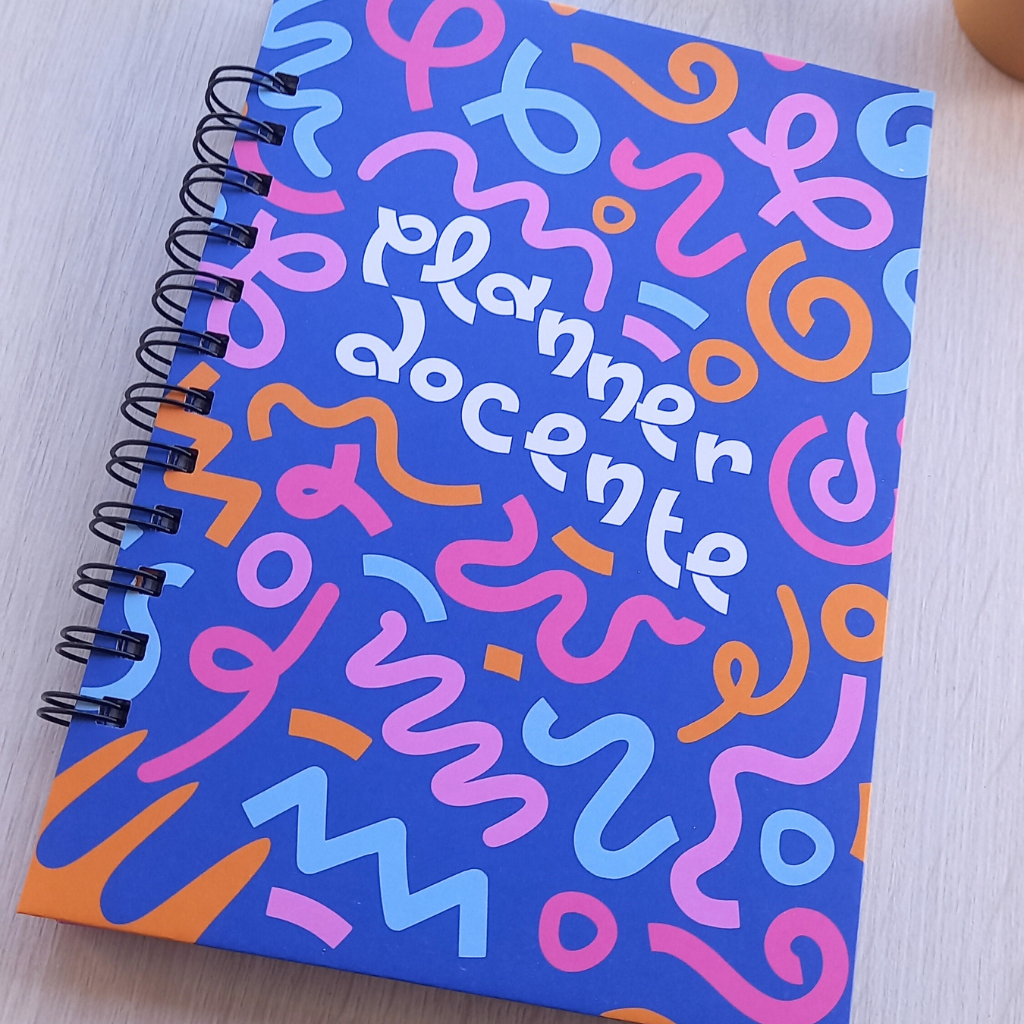 planner
docente